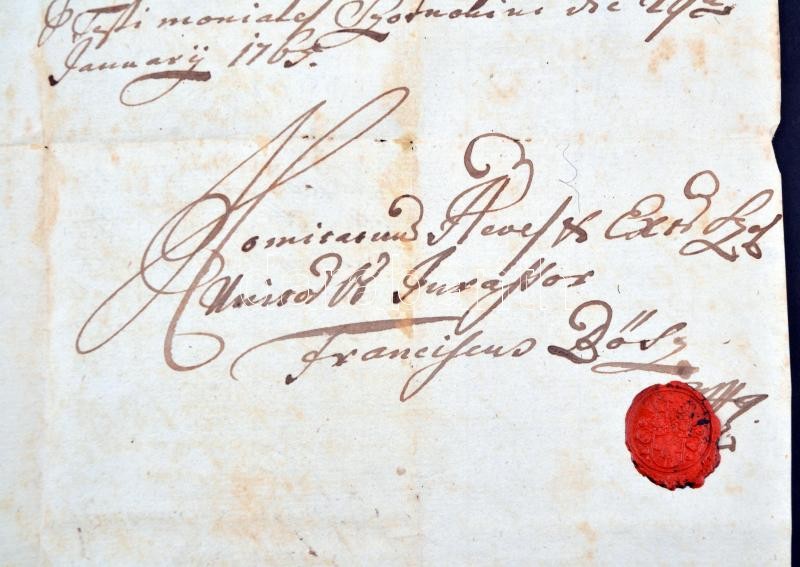 Testimoniales Szolnokini die 29na
January 1765.
Comitatuum Heves & Extr Szol
Unitor Jurassor
Franciscus Bősz
mpp